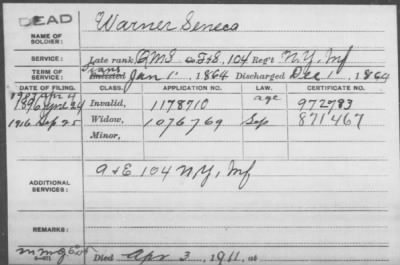 DEAD
NAME OF SOLDIER: Warner Seneca
SERVICE: Late rank QMS Co F&S, 104 Reg't N.Y. Inf
TERM OF SERVICE: Trans Enlisted Jan 1, 1864 Discharged Dec 1, 1864
DATE OF FILING. CLASS. APPLICATION NO. LAW. CERTIFICATE NO.
1907 Apr 4 age
1896 April 24 Invalid, 1178710 972783
1916 Sep 25 Widow, 1076769 Sep 871467
Minor,
ADDITIONAL SERVICES: A & E 104 N.Y. Inf
REMARKS:
Died Apr 3, 1911, at